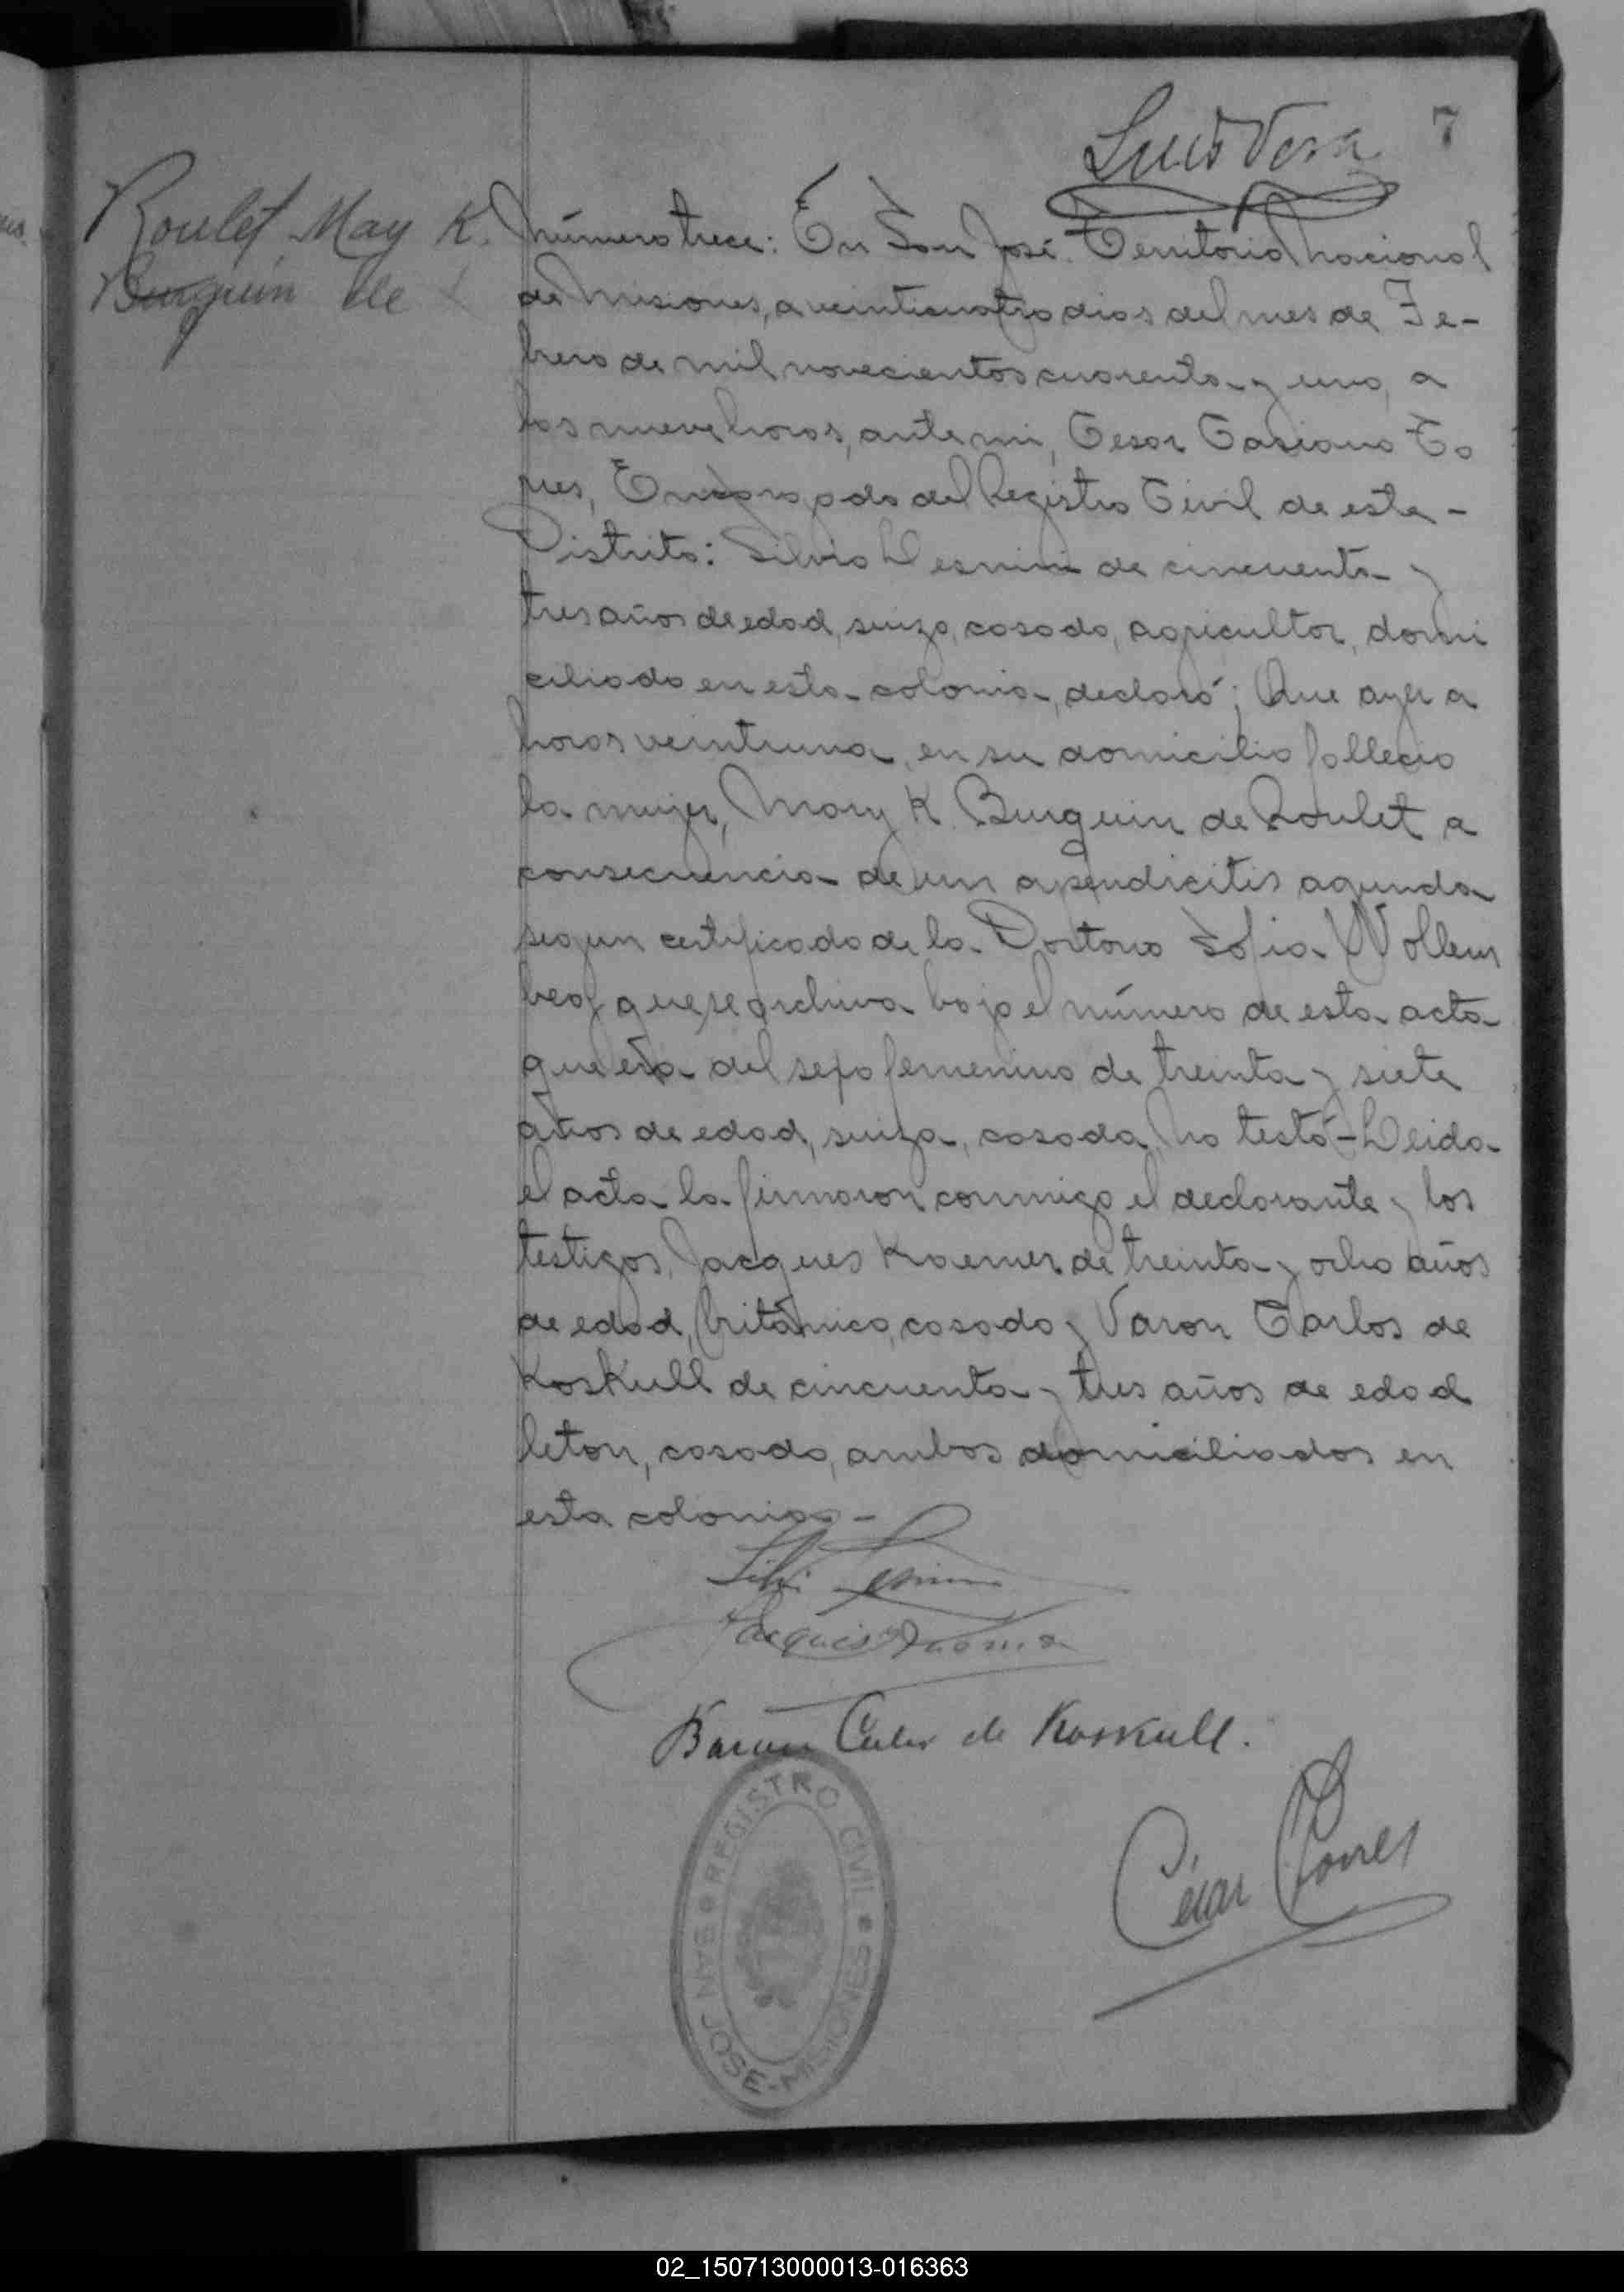 Luis Vera
7
Roulet May K.
Burquin de
Número trece: En San José. Territorio Nacional
de Misiones, a veinticuatro dias del mes de Fe-
brero de mil novecientos cuarenta y uno, a
las nueve horas, ante mi, Cesar Casiano To
rres, Encargado del Registro Civil de este -
Distrito: Silvio Lesnini de cincuenta y
tres años de edad, suizo, casado, agricultor, domi
ciliado en esta colonia, declaró; Que ayer a
horas veintiuna, en su domicilio fallecio
la mujer, Mary K. Burquin de Roulet a
consecuencia de un apendicitis agunda
segun certificado de la Dortora Sofia
que se archiva bajo el número de esta acta
que era del sexo femenino de treinta y siete
años de edad, suiza, casada, No testó - Leida
el acta la firmaron conmigo el declarante y los
testigos, Jacques Kraemer de treinta y ocho años
de edad, británico, casado y Varon Carlos de
Koskull de cincuenta y tres años de edad
leton, casado, ambos domiciliados en
esta colonia -
Baron Carlos de Koskull.
César Torres
REGISTRO CIVIL
SAN JOSE - MISIONES
02_150713000013-016363